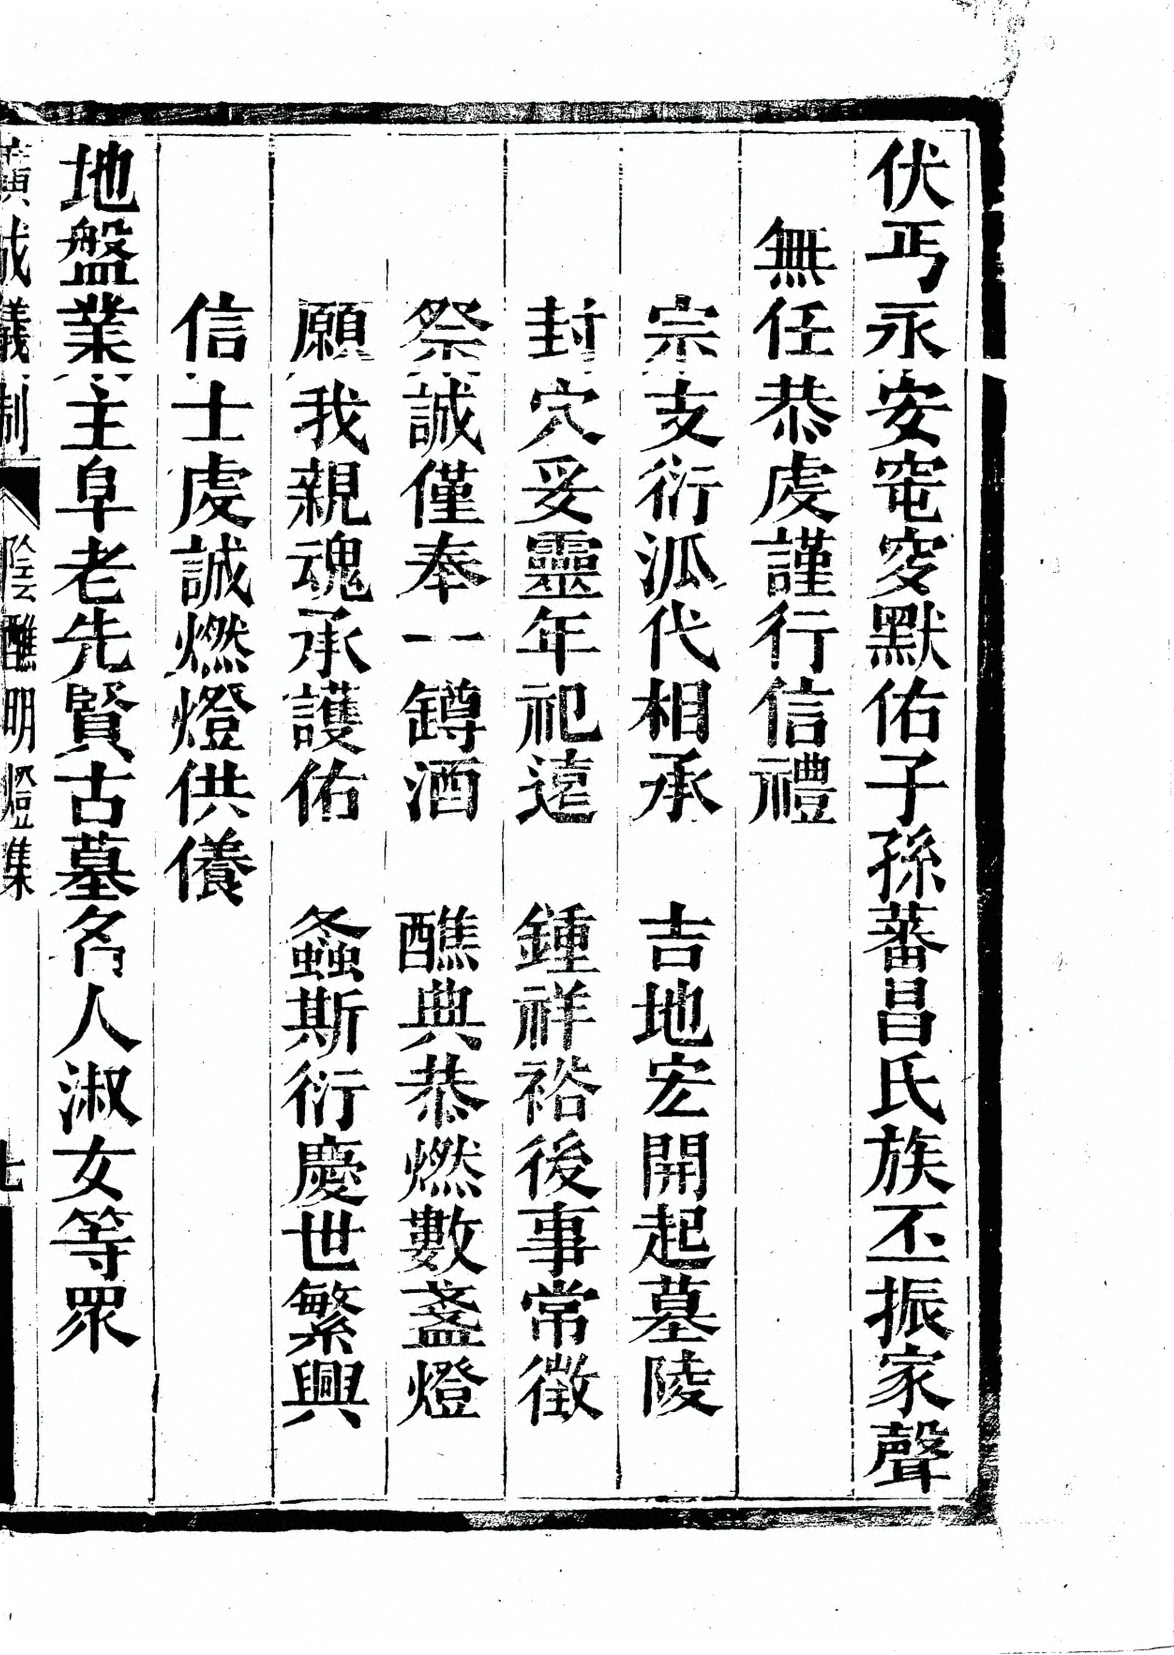 伏丐永安窀穸默佑子孫蕃昌氏族丕振家聲
無任恭虔謹行信禮
宗支衍泒代相承　吉地宏開起墓陵
封穴妥靈年祀遠　鍾祥裕後事常徵
祭誠僅奉一罇酒　醮典恭燃數盞燈
願我親魂承護佑　螽斯衍慶世繁興
信士虔誠燃燈供養
地盤業主阜老先賢古墓名人淑女等眾
廣成儀制　陰醮明燈集　七